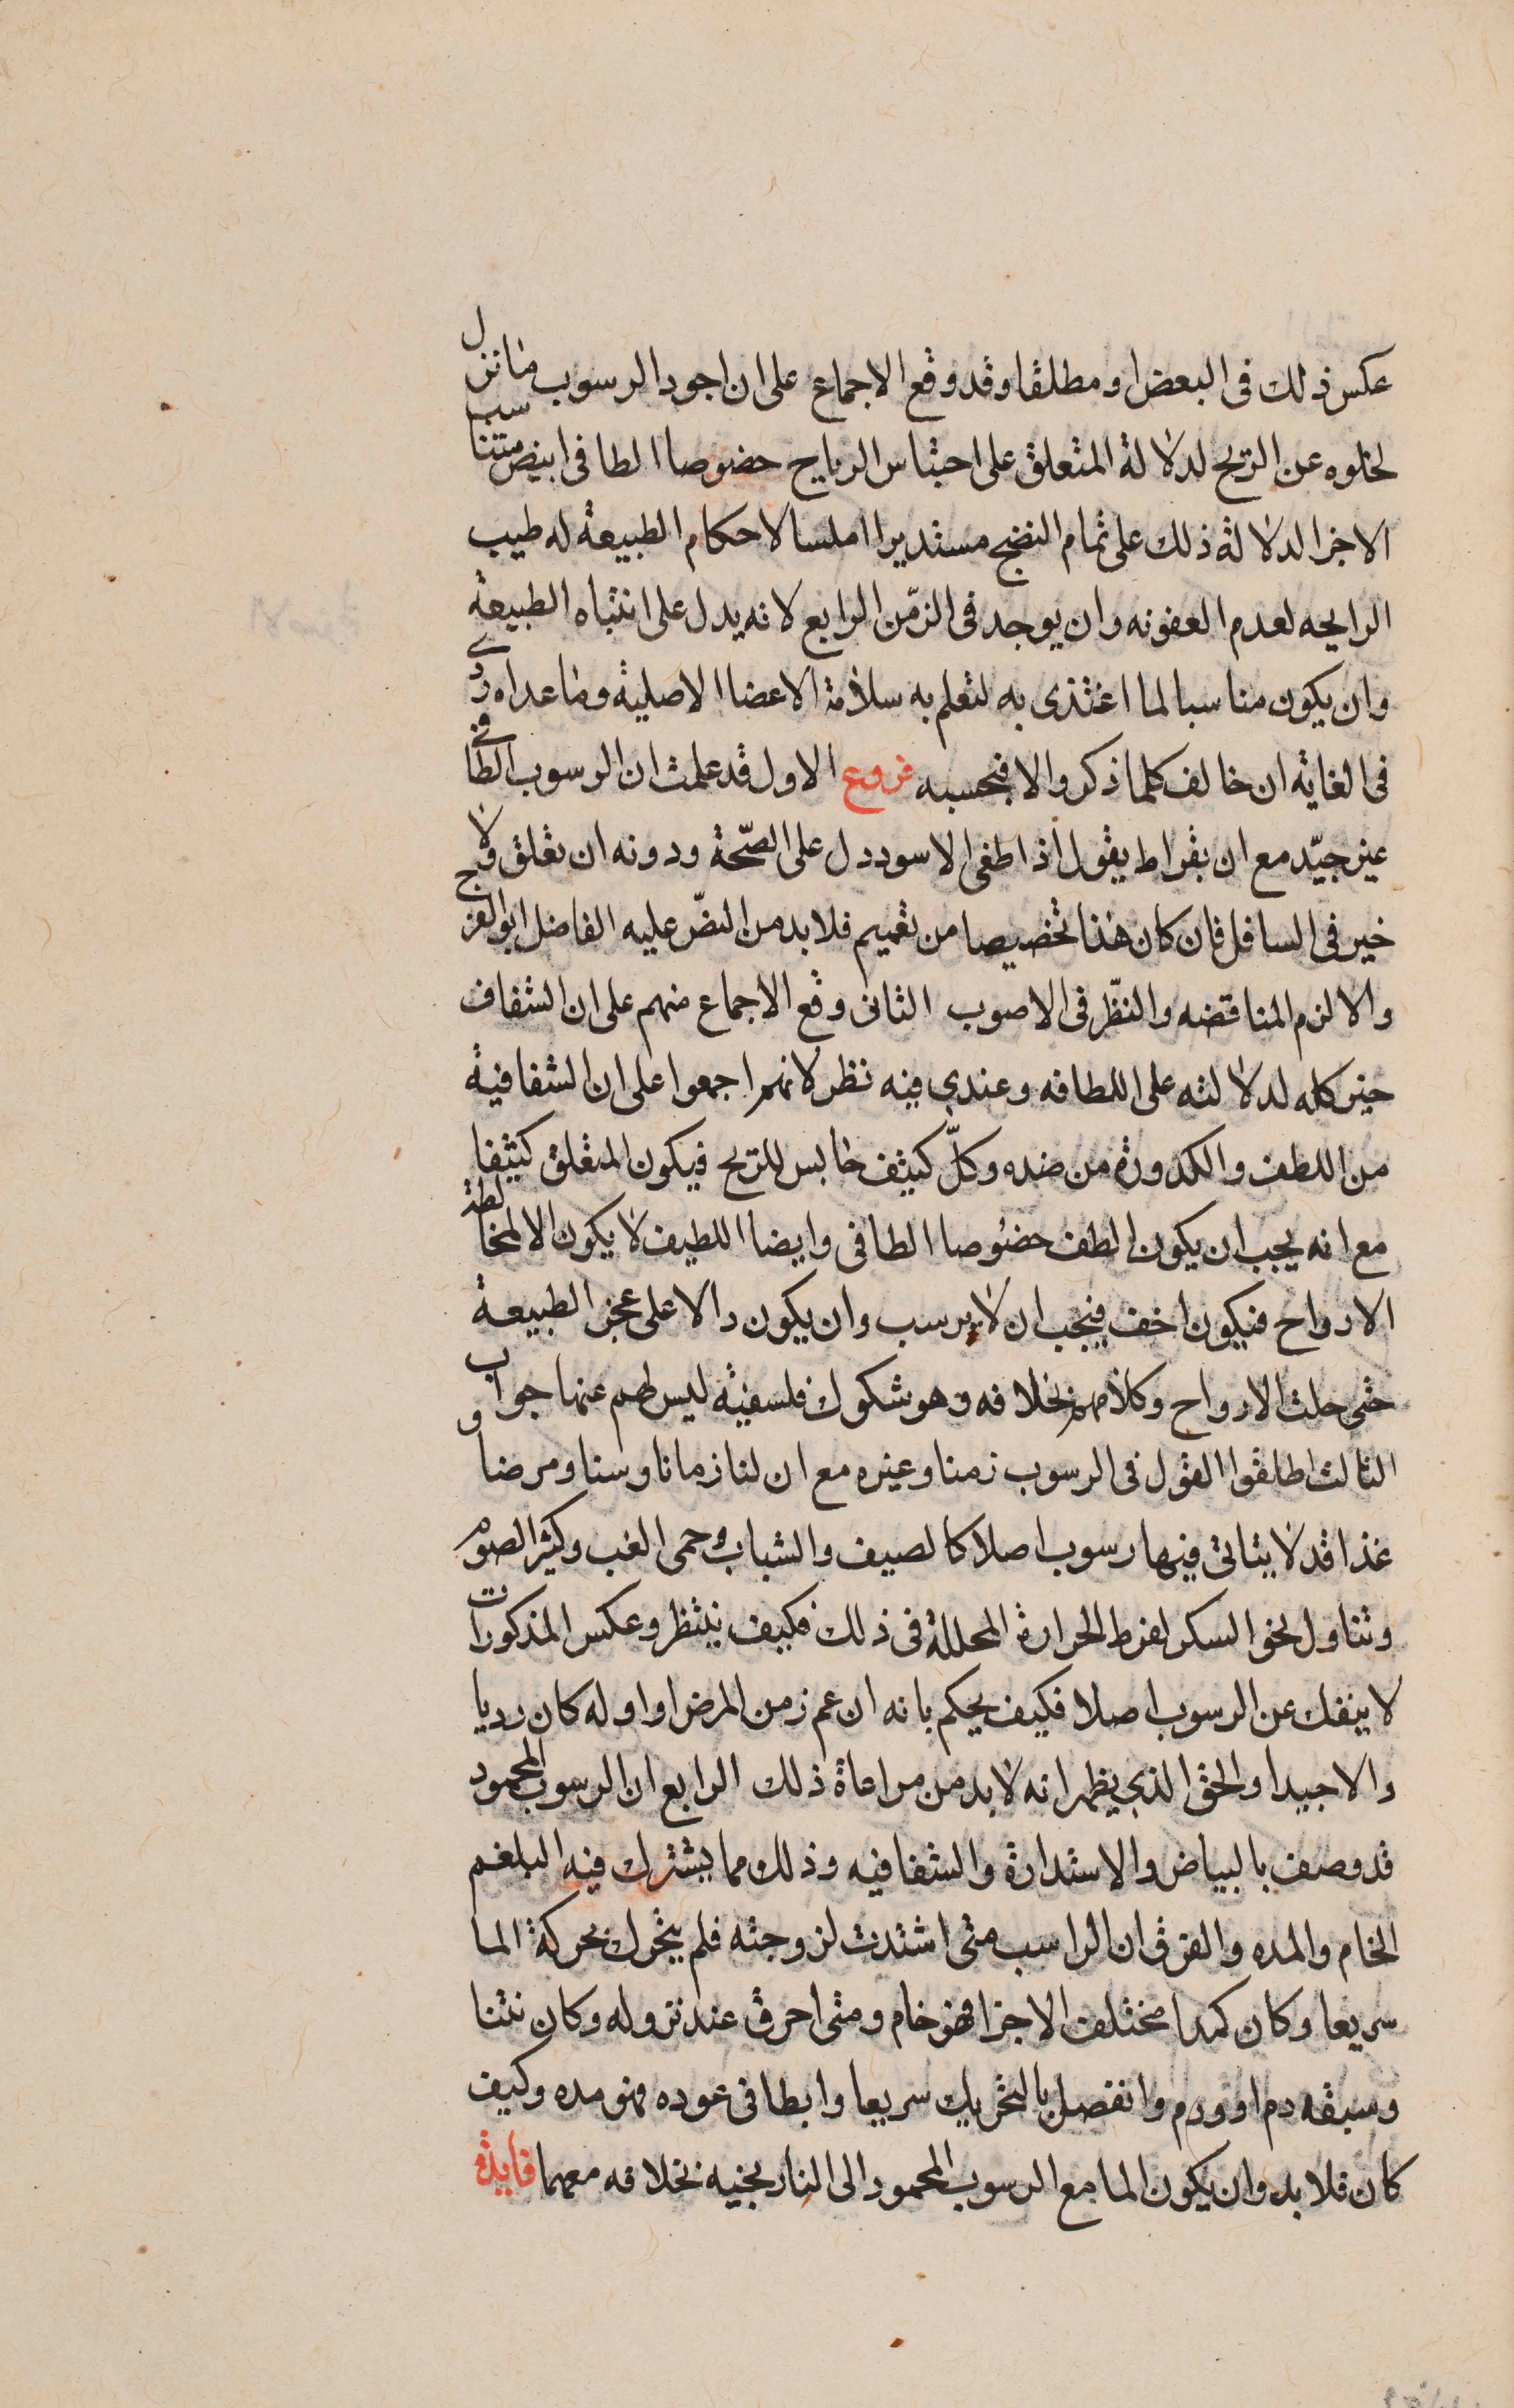 عكس ذلك فى البعض او مطلقا وقد وقع الاجماع على ان اجود الرسوب ما نزل
لخلوه عن الريح لدلالة المتعلق على احتباس الرياح خصوصا الطافى ابيض متناسب
الاجزا لدلالة ذلك على تمام النضج مستديرا املسا لاحكام الطبيعة له طيب
الرايحه لعدم العفونه وان يوجد فى الزمن الرابع لانه يدل على انتباه الطبيعة
وان يكون مناسبا لما اغتذى به لتعلم به سلامة الاعضا الاصلية وما عداه ردى
فى الغاية ان خالف كلما ذكر والا فبحسبه فروع الاول قد علمت ان الرسوب الطافى
غير جيّد مع ان بقراط يقول اذا طفى الاسود دل على الصّحة ودونه ان تعلق ولا
خير فى السافل فان كان هذا تخصيصا من تعميم فلا بد من النصّ عليه الفاضل ابو الفرج
والا لزم المناقضه والنظر فى الاصوب الثانى وقع الاجماع منهم على ان الشفاف
خير كله لدلالته على اللطافه وعندي فيه نظر لانهم اجمعوا على ان الشفافية
من اللطف والكدورة من ضده وكلّ كثيف حابس للريح فيكون المتعلق كثيفا
مع انه يجب ان يكون الطف خصوصا الطافى وايضا اللطيف لا يكون الا لمخالطة
الارواح فيكون اخف فيجب ان لا يرسب وان يكون دالا على عجز الطبيعة
حتى حلت الارواح وكلامهم بخلافه وهو شكوك فلسفية ليس لهم عنها جواب
الثالث اطلقوا القول فى الرسوب زمنا وغيره مع ان لنا زمانا وسنا ومرضا و
غذا قد لا يتاتى فيها رسوب اصلا كالصيف والشباب وحمى الغب وكثير الصوم
وتناول نحو السكر لفرط الحرارة المحللة فى ذلك فكيف ينتظر وعكس المذكورات
لا ينفك عن الرسوب اصلا فكيف يحكم بانه ان عم زمن المرض او اوله كان رديا
والا جيدا والحق الذي يظهر انه لا بد من مراعاة ذلك الرابع ان الرسوب المحمود
قد وصف بالبياض والاستدارة والشفافيه وذلك مما يشترك فيه البلغم
الخام والمده والفرق ان الراسب متى اشتدت لزوجته فلم يتحرك بحركة الما
سريعا وكان كمدا مختلف الاجزا فهو خام ومتى احرق عند نزوله وكان نتنا
وسبقه دم او ورم وانفصل بالتحريك سريعا وابطا فى عوده فهو مده وكيف
كان فلا بد وان يكون الما مع الرسوب المحمود الى النارنجيه بخلافه معهما فايدة